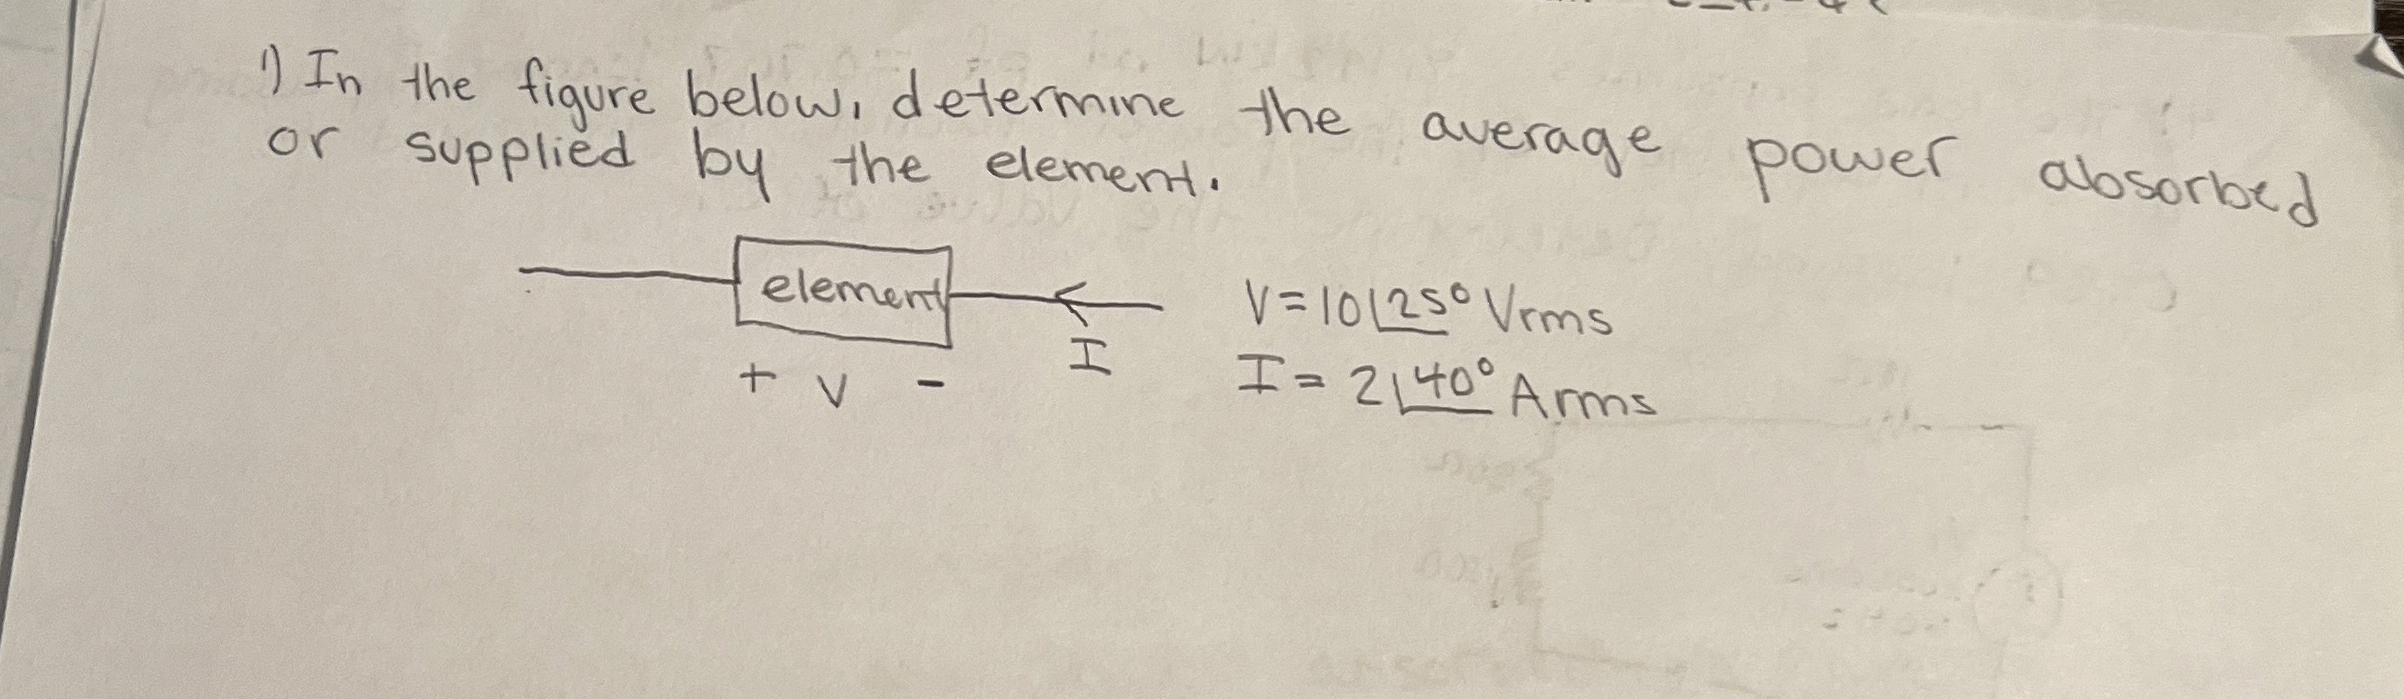 1) In the figure below, determine the average power absorbed
or supplied by the element.
element
I
+ V -
V = 10∠25° Vrms
I = 2∠40° Arms